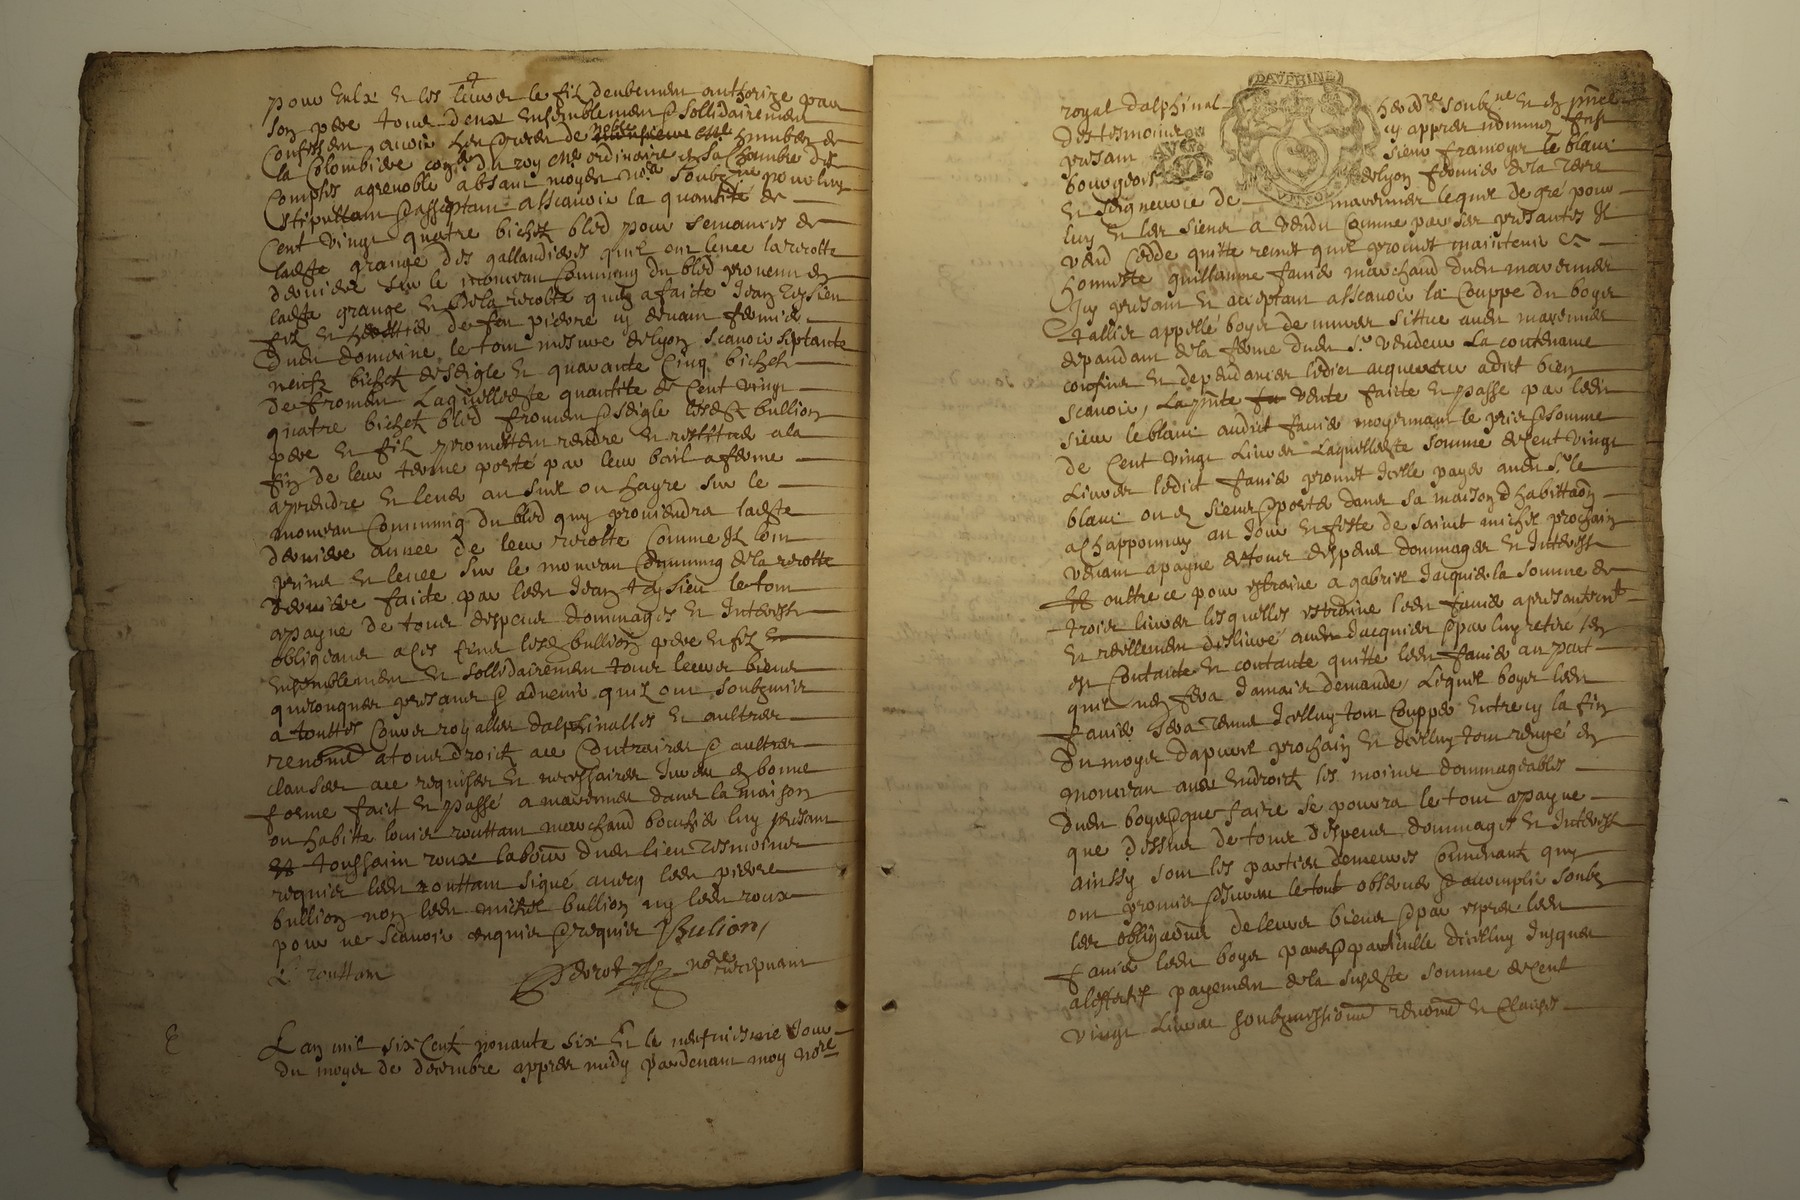 pour eulx et les leurs le filz deubement authorizé par
son pere tous deux ensemblement & sollidairement
confessent avoir heu & receu de noble humbert de
la Colombiere conser du roy me ordinaire en sa chambre des
comptes a grenoble absant moyen nore soubzne pour luy
stipullant & acceptant asscavoir la quantité de
Cent vingt quatre bichetz bled pour semances de
ladte grange des gallandieres quil ont levee la recolte
derniere sur le monceau commung du bled provenu en
ladte grange et de la recolte quen a faicte Jean tessieu
filz et heritier de feu pierre cy devant fermier
dudt domaine le tout mesure de lyon scavoir septante
neufz bichetz de seigle et quarante cinq bichetz
de froment Laquelle dte quantité de Cent vingt
quatre bichetz bled froment & seigle lesdts bullion
pere et filz promettent rendre et restitue a la
fin de leur terme porté par leur bail a ferme
a prendre et lever au suel ou hayre sur le
monceau commung du bled quy proviendra ladte
derniere annee de leur recolte comme Il lont
prins et levee sur le monceau commung de la recolte
derniere faicte par ledt Jean tessieu le tout
a payne de tous despens dommages et Interestz
obligeant a ces fins lesdts bullion pere et filz
ensemblement et sollidairement tous leurs biens
quelconques presans & advenir quilz ont soubzmis
a touttes cours royalles dalphinalles et aultres
renoncé a tous droictz au contraires & aultres
clauses requises et necessaires Juré en bonne
forme faict et passé a marennes dans la maison
ou habitte louis routtant marchand bouchier luy presant
toussaint roux labour dudt lieu tesmoings
requis ledt routtant signé avecq ledt pierre
bullion non ledt michel bullion ny ledt roux
pour ne scavoir enquis & requis Bulion
L routtant nore recepvant
Lan mil six Centz nonante six et le neufviesme Jour
du moys de decembre appres midy pardevant moy nore
DAVPHINE
royal dalphinal heredre soubzne et en pnce
des tesmoings cy appres nommez fust
presant sieur françoys le blanc
bourgeois de lyon fermier de la terre
et seigneurie de marennes lequel de gré pour
luy et les siens a vendu comme par ses presantes Il
vend cedde quitte remet quil promet maintenir &c
honneste guilliaume favier marchand dudt marennes
Icy presant et acceptant asscavoir la Couppe du boys
tallier appellé boys de mures sittué audt marennes
depandant de la ferme dudt sr vendeur La contenance
confins et dependances ledict acquereur a dict bien
scavoir, La pnte vente faicte et passé par ledt
sieur le blanc audict favier moyennant le prix & somme
de Cent vingt Livres Laquelle dte somme de Cent vingt
Livres ledict favier promet Icelle payer audt sr le
blanc ou es siens & porté dans sa maison dhabittaon
a chapponnay au Jour et feste de saint michel prochain
venant a payne de tous despens dommages et Interestz
oultre ce pour estraine a gabriel Jacquier la somme de
trois livres lesquelles estraine ledt favier a presantemt
et reellement deslivré audt Jacquier & par luy retiré sen
contante et contante quitte ledt favier au pact
quil nen fera Jamais demande, Lequel boys ledt
favier sera tenu Icelluy tout coupper entre cy la fin
du moys dapvril prochain et Icelluy tout rengé en
monceau aux endroictz les moins dommageables
dudt boys que faire se pourra le tout a payne
que dessus de tous despens dommages et Interestz
ainssy sont les parties demeures convenantz quy
ont promis & Juré le tout observer & accomplir soubz
les obligaons de leurs biens & par expres ledt
favier ledt boys parts & particulle dicelluy Jusques
a leffectif payement de la susdte somme de Cent
vingt Livres soubzmissions renonce et clauses